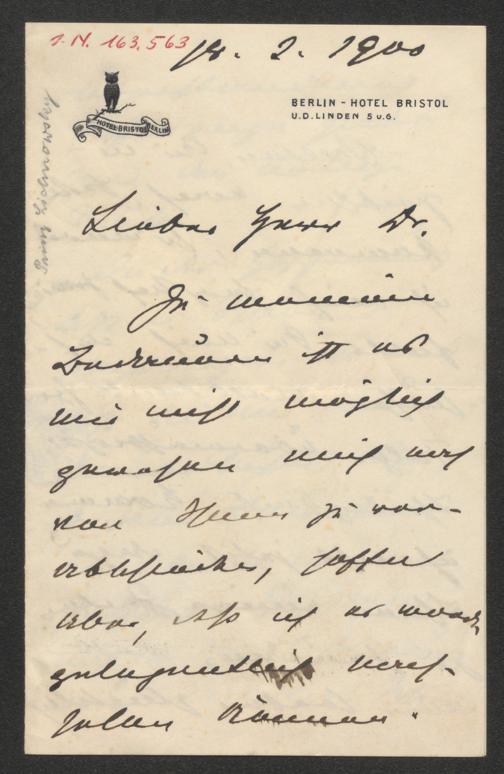 I.N. 163.563
18. 2. 1900
HOTEL-BRISTOL BERLIN
BERLIN - HOTEL BRISTOL
U.D. LINDEN 5 u. 6.
Prinz Lichnowsky
Lieber Herr Dr.
Zu meinem
Bedauern ist es
mir nicht möglich
gewesen mich noch
von Ihnen zu ver-
abschieden, hoffe
aber, daß ich es
gelegentlich nach-
holen können.